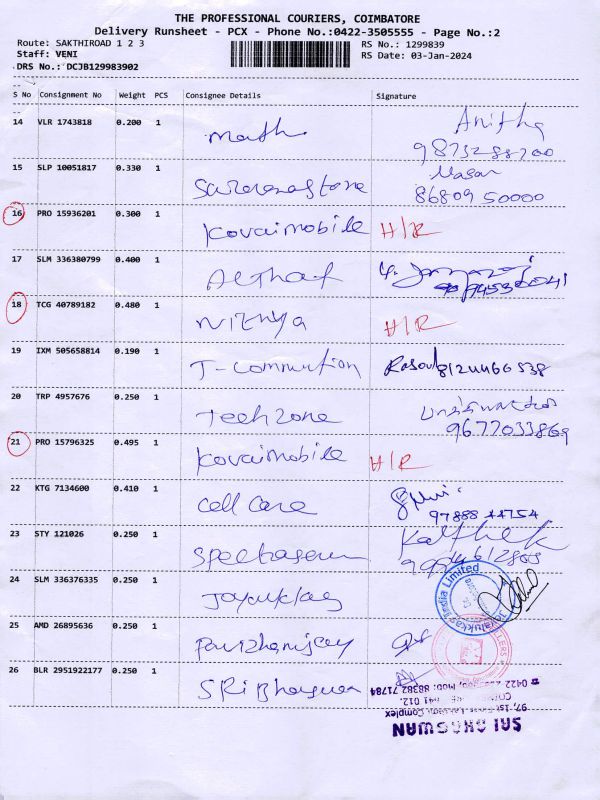 THE PROFESSIONAL COURIERS, COIMBATORE
Delivery Runsheet - PCX - Phone No.:0422-3505555 - Page No.:2
Route: SAKTHIROAD 1 2 3
RS No.: 1299839
Staff: VENI
RS Date: 03-Jan-2024
DRS No.: DCJB129983902
S No Consignment No Weight PCS Consignee Details Signature
14 VLR 1743818 0.200 1 Anitha
15 SLP 10051817 0.330 1 Saravanastone
86809 50000
16 PRO 15936201 0.300 1 Kovaimobile H/R
17 SLM 336380799 0.400 1 Althaf
18 TCG 40789182 0.480 1 Nithya H/R
19 IXM 505658814 0.190 1 8124466538
20 TRP 4957676 0.250 1 Techzone
9677033869
21 PRO 15796325 0.495 1 Kovaimobile H/R
22 KTG 7134600 0.410 1 Cell Care
97888 44754
23 STY 121026 0.250 1 Karthek
24 SLM 336376335 0.250 1
India Limited
25 AMD 26895636 0.250 1
26 BLR 2951922177 0.250 1 SRi Bhagwan
SAI BHAGWAN
Complex
641 012.
Mob: 88382 71784